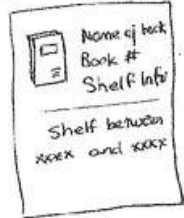 Name of book
Book #
Shelf Info
Shelf between
xxxx and xxxx